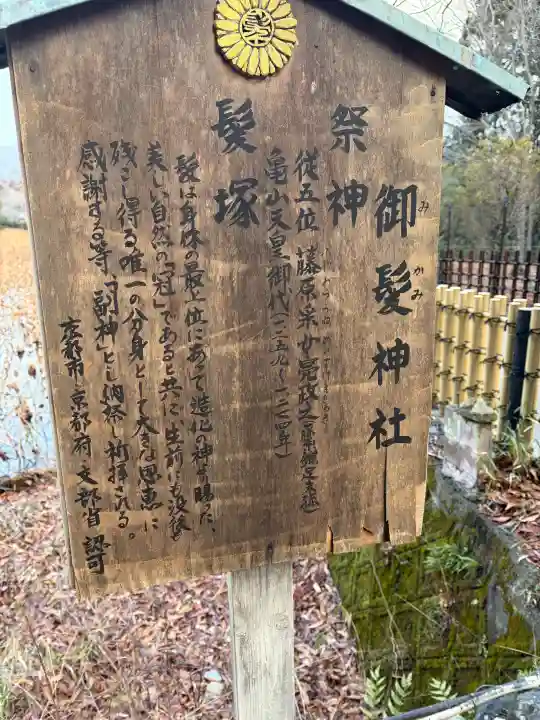 御髪神社
みかみ
祭神
従五位 藤原采女亮政之(藤原鎌足末孫)
亀山天皇御代(一二五九〜一二七四年)
髪塚
髪は身体の最上位にあって造化の神より賜った、
美しい自然の「冠」であると共に、生前にも没後も
残こし得る唯一の分身として大きな恩恵に
感謝する等、「副神」とし納祭、祈拝される。
京都市・京都府・文部省 認可